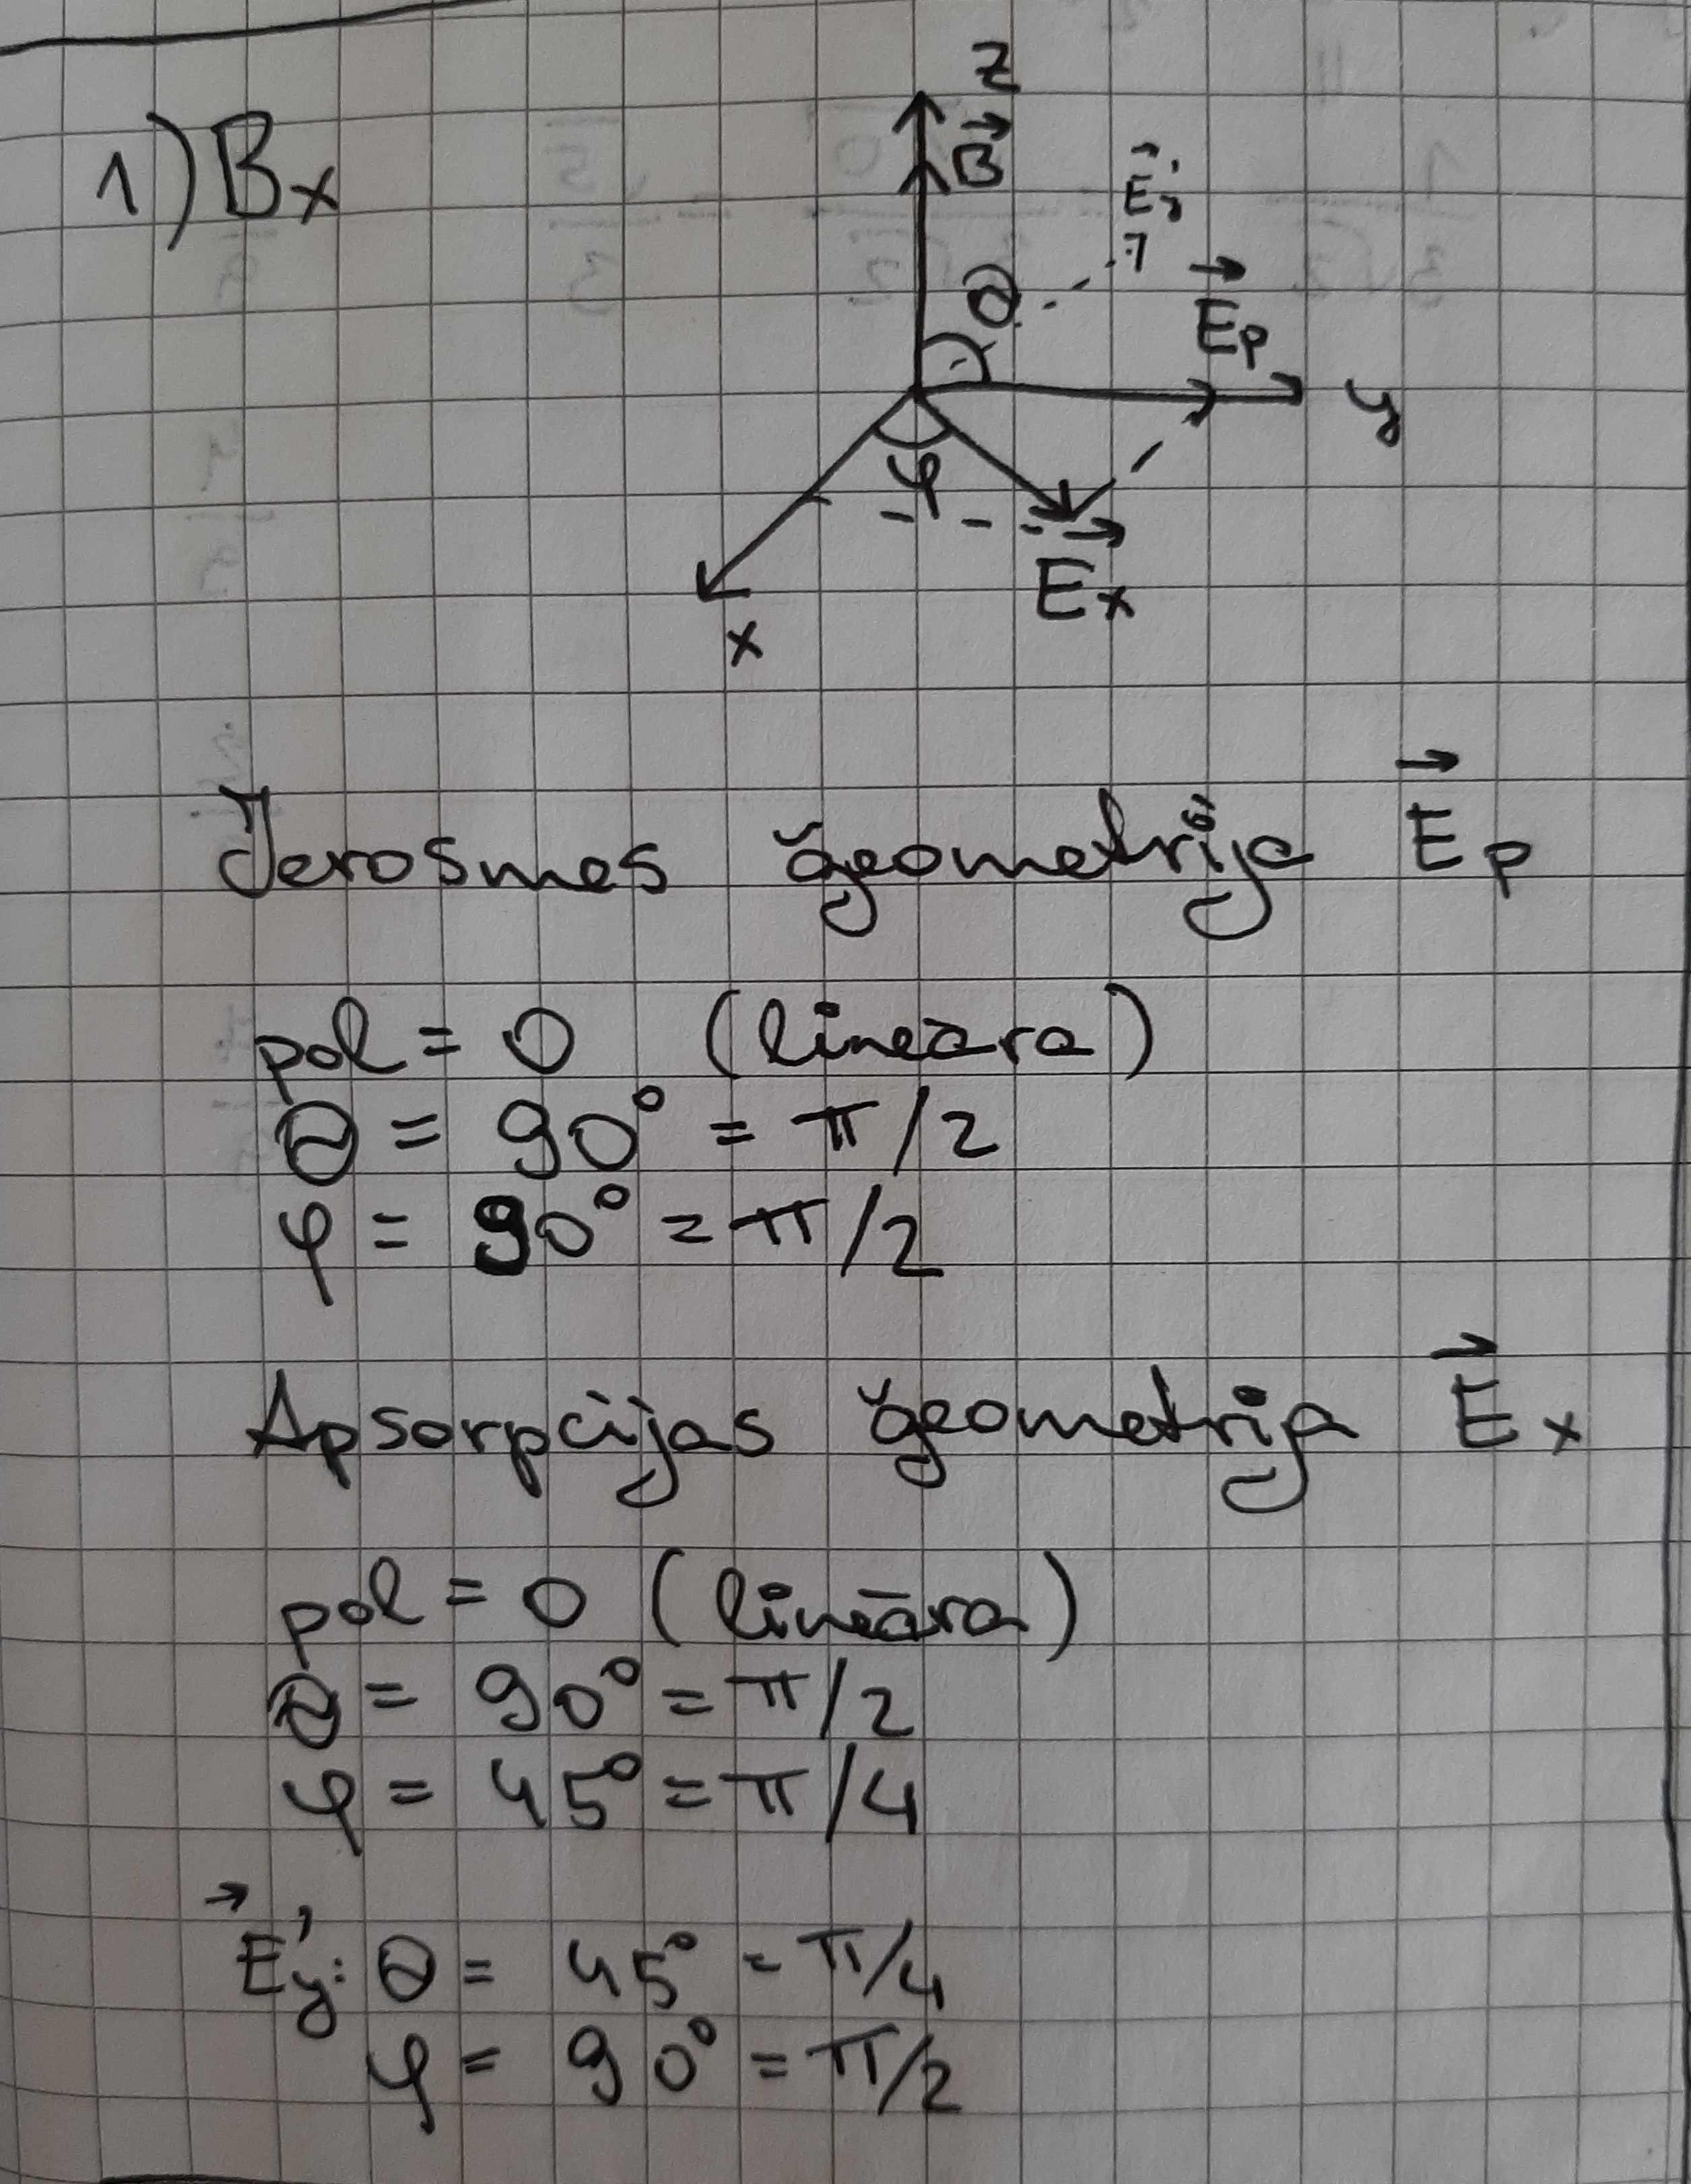 1) Bx
z
B⃗
E⃗'y
Θ
E⃗p
y
φ
E⃗x
x
Ierosmes ģeometrija E⃗p
pol = 0 (lineāra)
Θ = 90° = π/2
φ = 90° = π/2
Apsorpcijas ģeometrija E⃗x
pol = 0 (lineāra)
Θ = 90° = π/2
φ = 45° = π/4
E⃗'y: Θ = 45° = π/4
φ = 90° = π/2